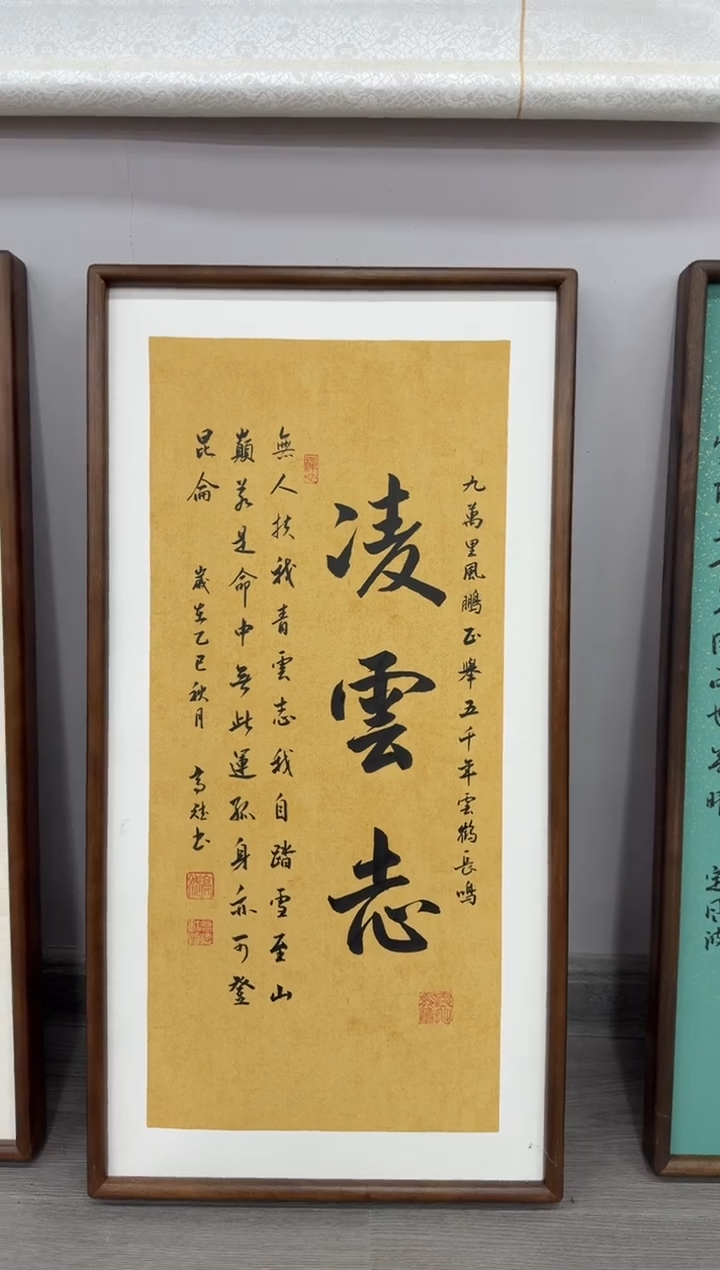 九萬里風鵬正舉五千年雲鶴長鳴
凌雲志
無人扶我青雲志我自踏雪至山
巔若是命中無此運孤身亦可登
昆侖 歲在乙巳秋月 高书
定风波